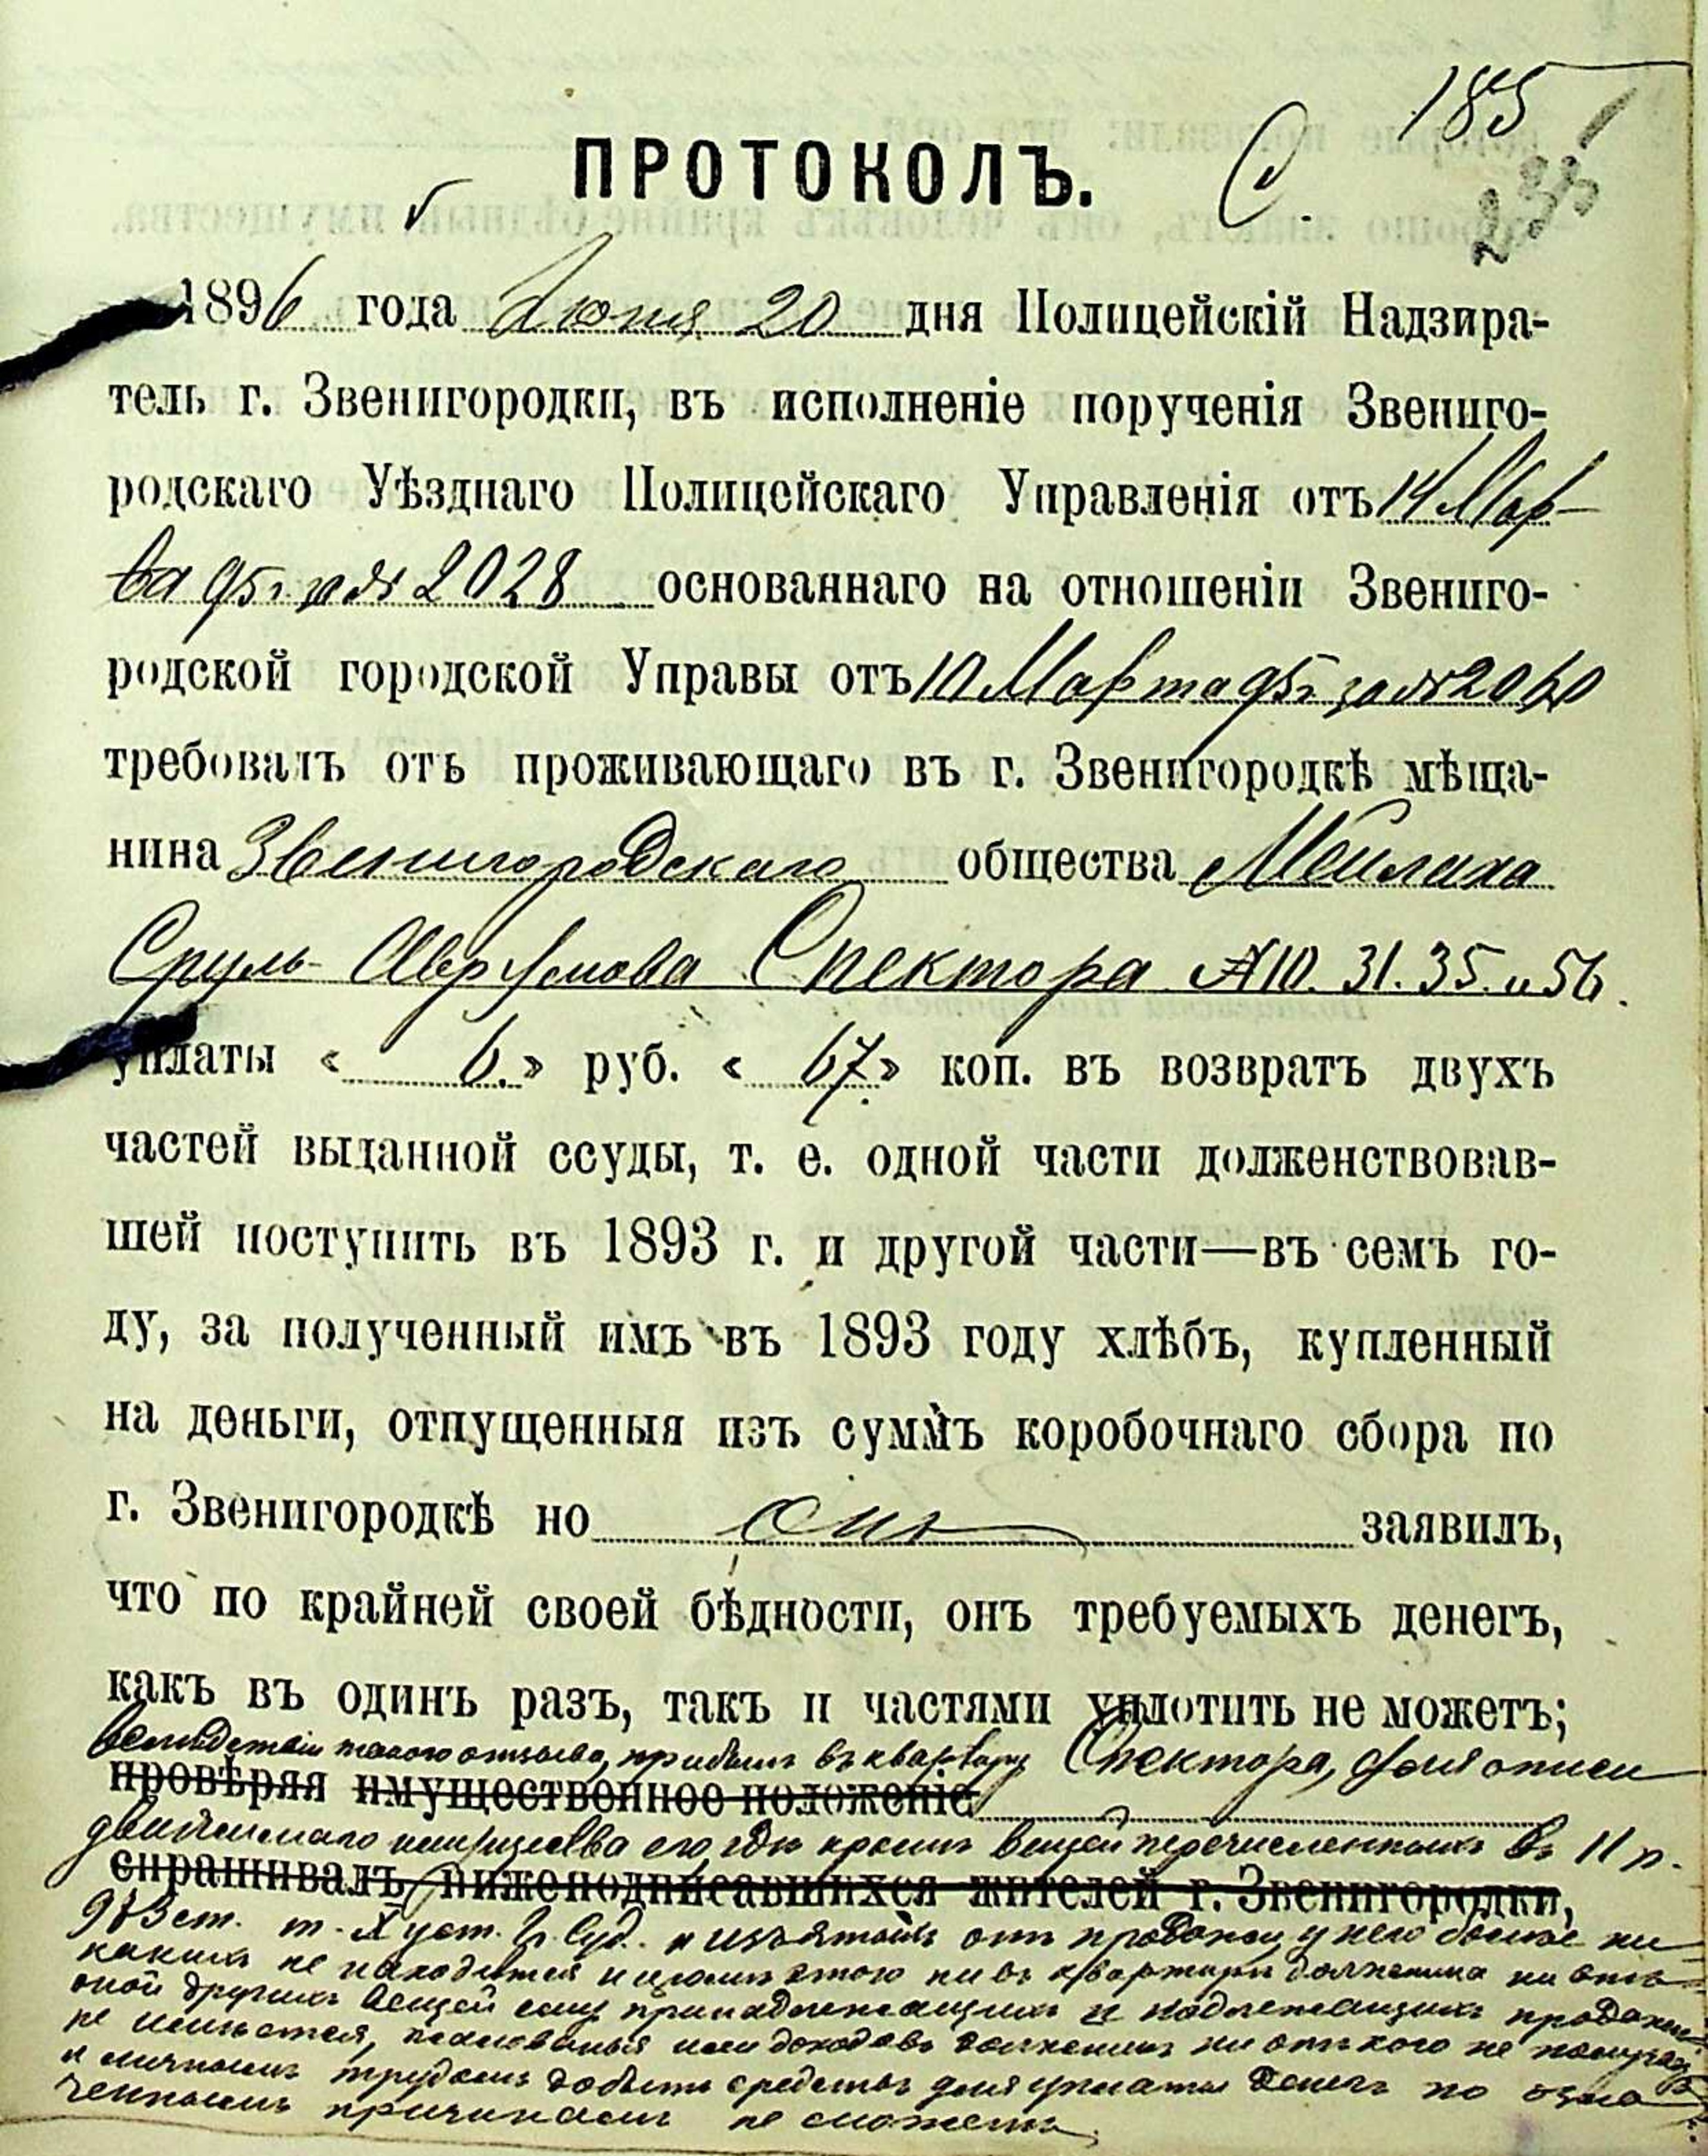 185
235
ПРОТОКОЛЪ.
1896 года Іюня 20 дня Полицейскій Надзира-
тель г. Звенигородки, въ исполненіе порученія Звениго-
родскаго Уѣзднаго Полицейскаго Управленія отъ 14 Мар-
та 95 г. за № 2028 основаннаго на отношеніи Звениго-
родской городской Управы отъ 10 Марта 95 г. за № 2060
требовалъ отъ проживающаго въ г. Звенигородкѣ мѣща-
нина Звенигородскаго общества Мейлаха
Сруль-Аврумова Спектора № 10. 31. 35. и 56.
уплаты « 6. » руб. « 67 » коп. въ возвратъ двухъ
частей выданной ссуды, т. е. одной части долженствовав-
шей поступить въ 1893 г. и другой части—въ семъ го-
ду, за полученный имъ въ 1893 году хлѣбъ, купленный
на деньги, отпущенныя изъ суммъ коробочнаго сбора по
г. Звенигородкѣ но онъ заявилъ,
что по крайней своей бѣдности, онъ требуемыхъ денегъ,
какъ въ одинъ разъ, такъ и частями уплотить не можетъ;
вслѣдствіи такого отзыва, прибылъ въ квартиру Спектора, для описи
провѣряя имущественное положеніе
движимаго имущества его, гдѣ кромѣ вещей перечисленныхъ въ 11 п.
спрашивалъ нижеподписавшихся жителей г. Звенигородки,
973 ст. т. X уст. Гр. Суд. и изъятыхъ отъ продажи у него болѣе ни
какихъ не находится и кромѣ этого ни въ квартирѣ должника ни внѣ
оной другихъ вещей ему принадлежащихъ и подлежащихъ продажѣ
не имѣется, жалованья или доходовъ должникъ ни отъ кого не получаетъ
и личнымъ трудомъ добыть средствъ для уплаты денегъ по озна
ченнымъ причинамъ не сможетъ